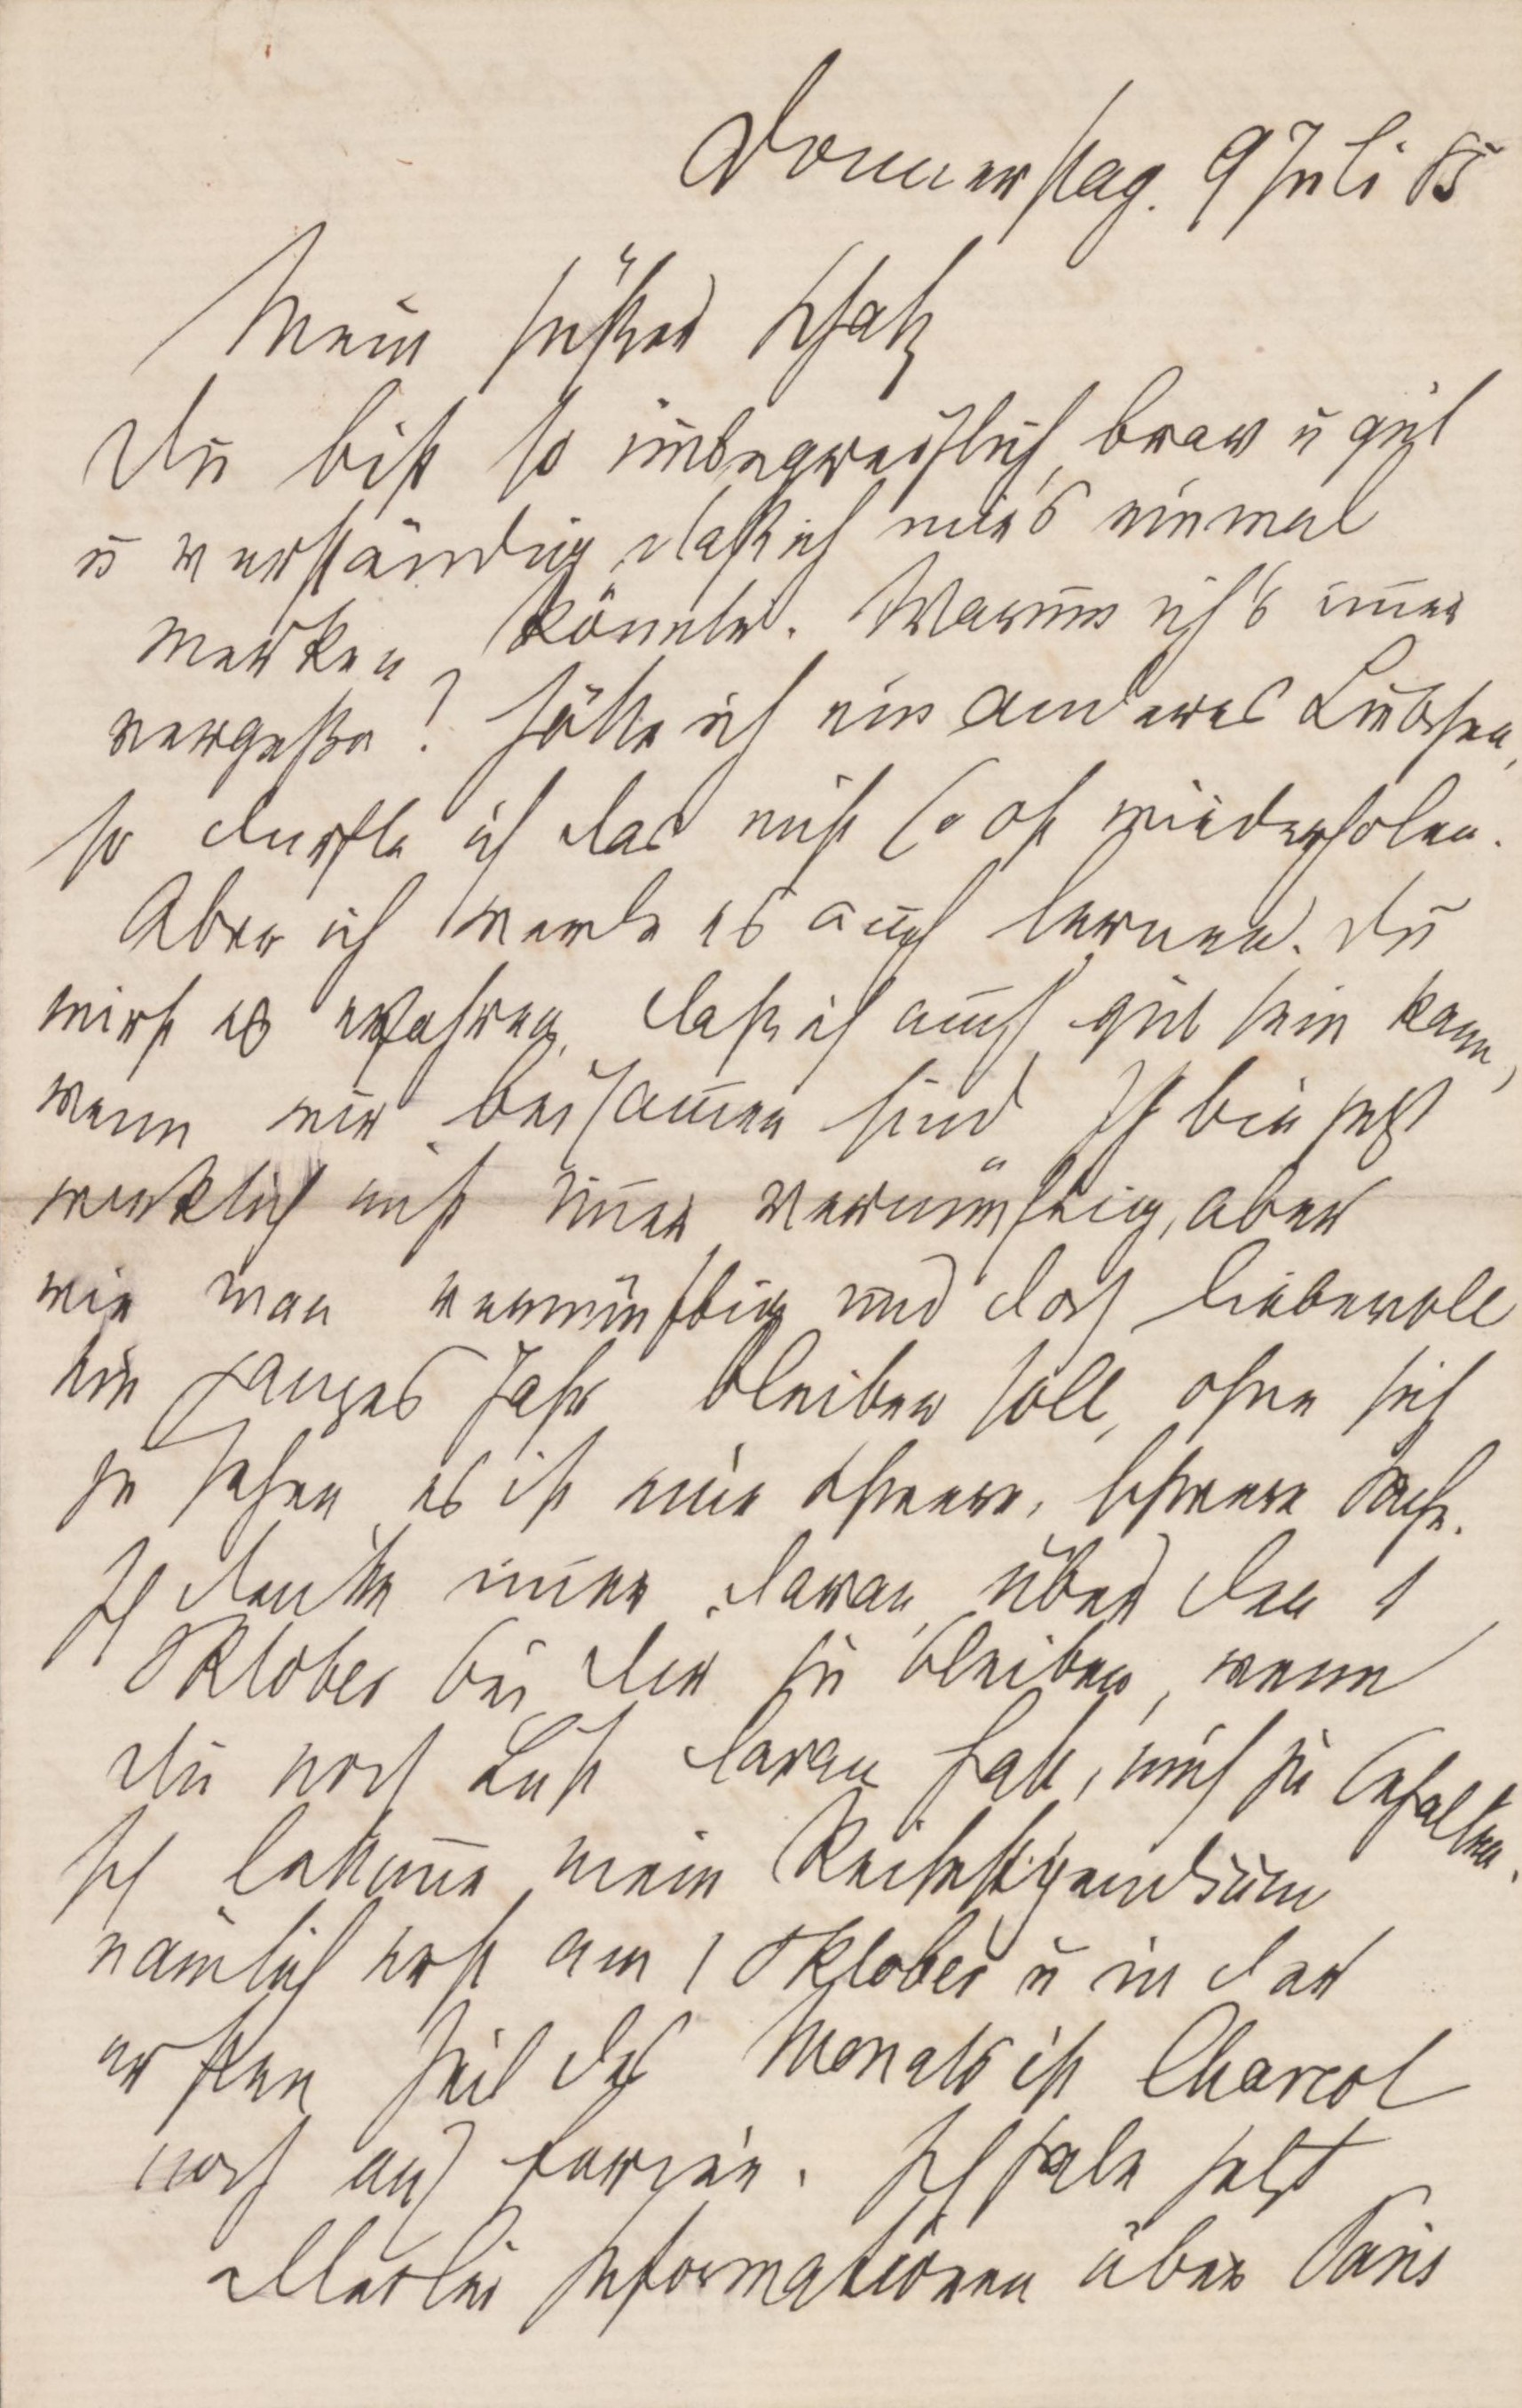 Donnerstag. 9 Juli 85
Mein süßer Schatz
Du bist so unbegreiflich brav u gut
u verständig, daß ich mir's einmal
merken könnte. Warum ich's im̄er
vergeße? Hätte ich ein anderes Liebchen,
so durfte ich das nicht so oft wiederholen.
Aber ich werde es auch lernen. Du
wirst es erfahren, daß ich auch gut sein kann,
wenn wir beisam̄en sind. Ich bin jetzt
wirklich nicht im̄er vernünftig, aber
wie man vernünftig und doch liebevoll
ein ganzes Jahr bleiben soll, ohne sich
zu sehen, es ist eine schwere, schwere Sache.
Ich denke im̄er daran, über den 1
Oktober bei Dir zu bleiben, wenn
Du noch Lust daran hast, mich zu behalten.
Ich bekom̄e mein Reisestipendium
nämlich erst am 1 Oktober u in der
ersten Zeit des Monats ist Charcot
noch auf Ferien. Ich habe jetzt
allerlei Informationen über Paris